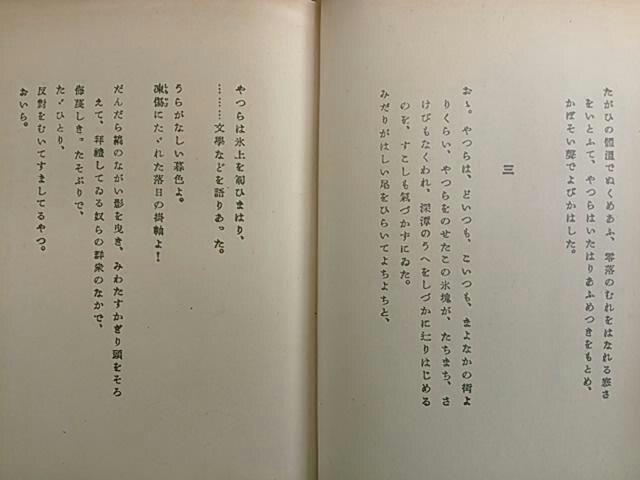 たがひの體溫でぬくめあふ、零落のむれをはなれる寒さ
をいとふて、やつらはいたはりあふめつきをもとめ、
かぼそい聲でよびかはした。
三
おゝ。やつらは、どいつも、こいつも、まよなかの街よ
りくらい、やつらをのせたこの氷塊が、たちまち、さ
けびもなくわれ、深潭のうへをしづかに辷りはじめる
のを、すこしも氣づかずにゐた。
みだりがはしい尾をひらいてよちよちと、
やつらは氷上を匍ひまはり、
………文學などを語りあった。
うらがなしい暮色よ。
凍傷にたゞれた落日の掛軸よ!
だんだら縞のながい影を曳き、みわたすかぎり頭をそろ
えて、拜禮してゐる奴らの群衆のなかで、
侮蔑しきったそぶりで、
たゞひとり、
反對をむいてすましてるやつ。
おいら。